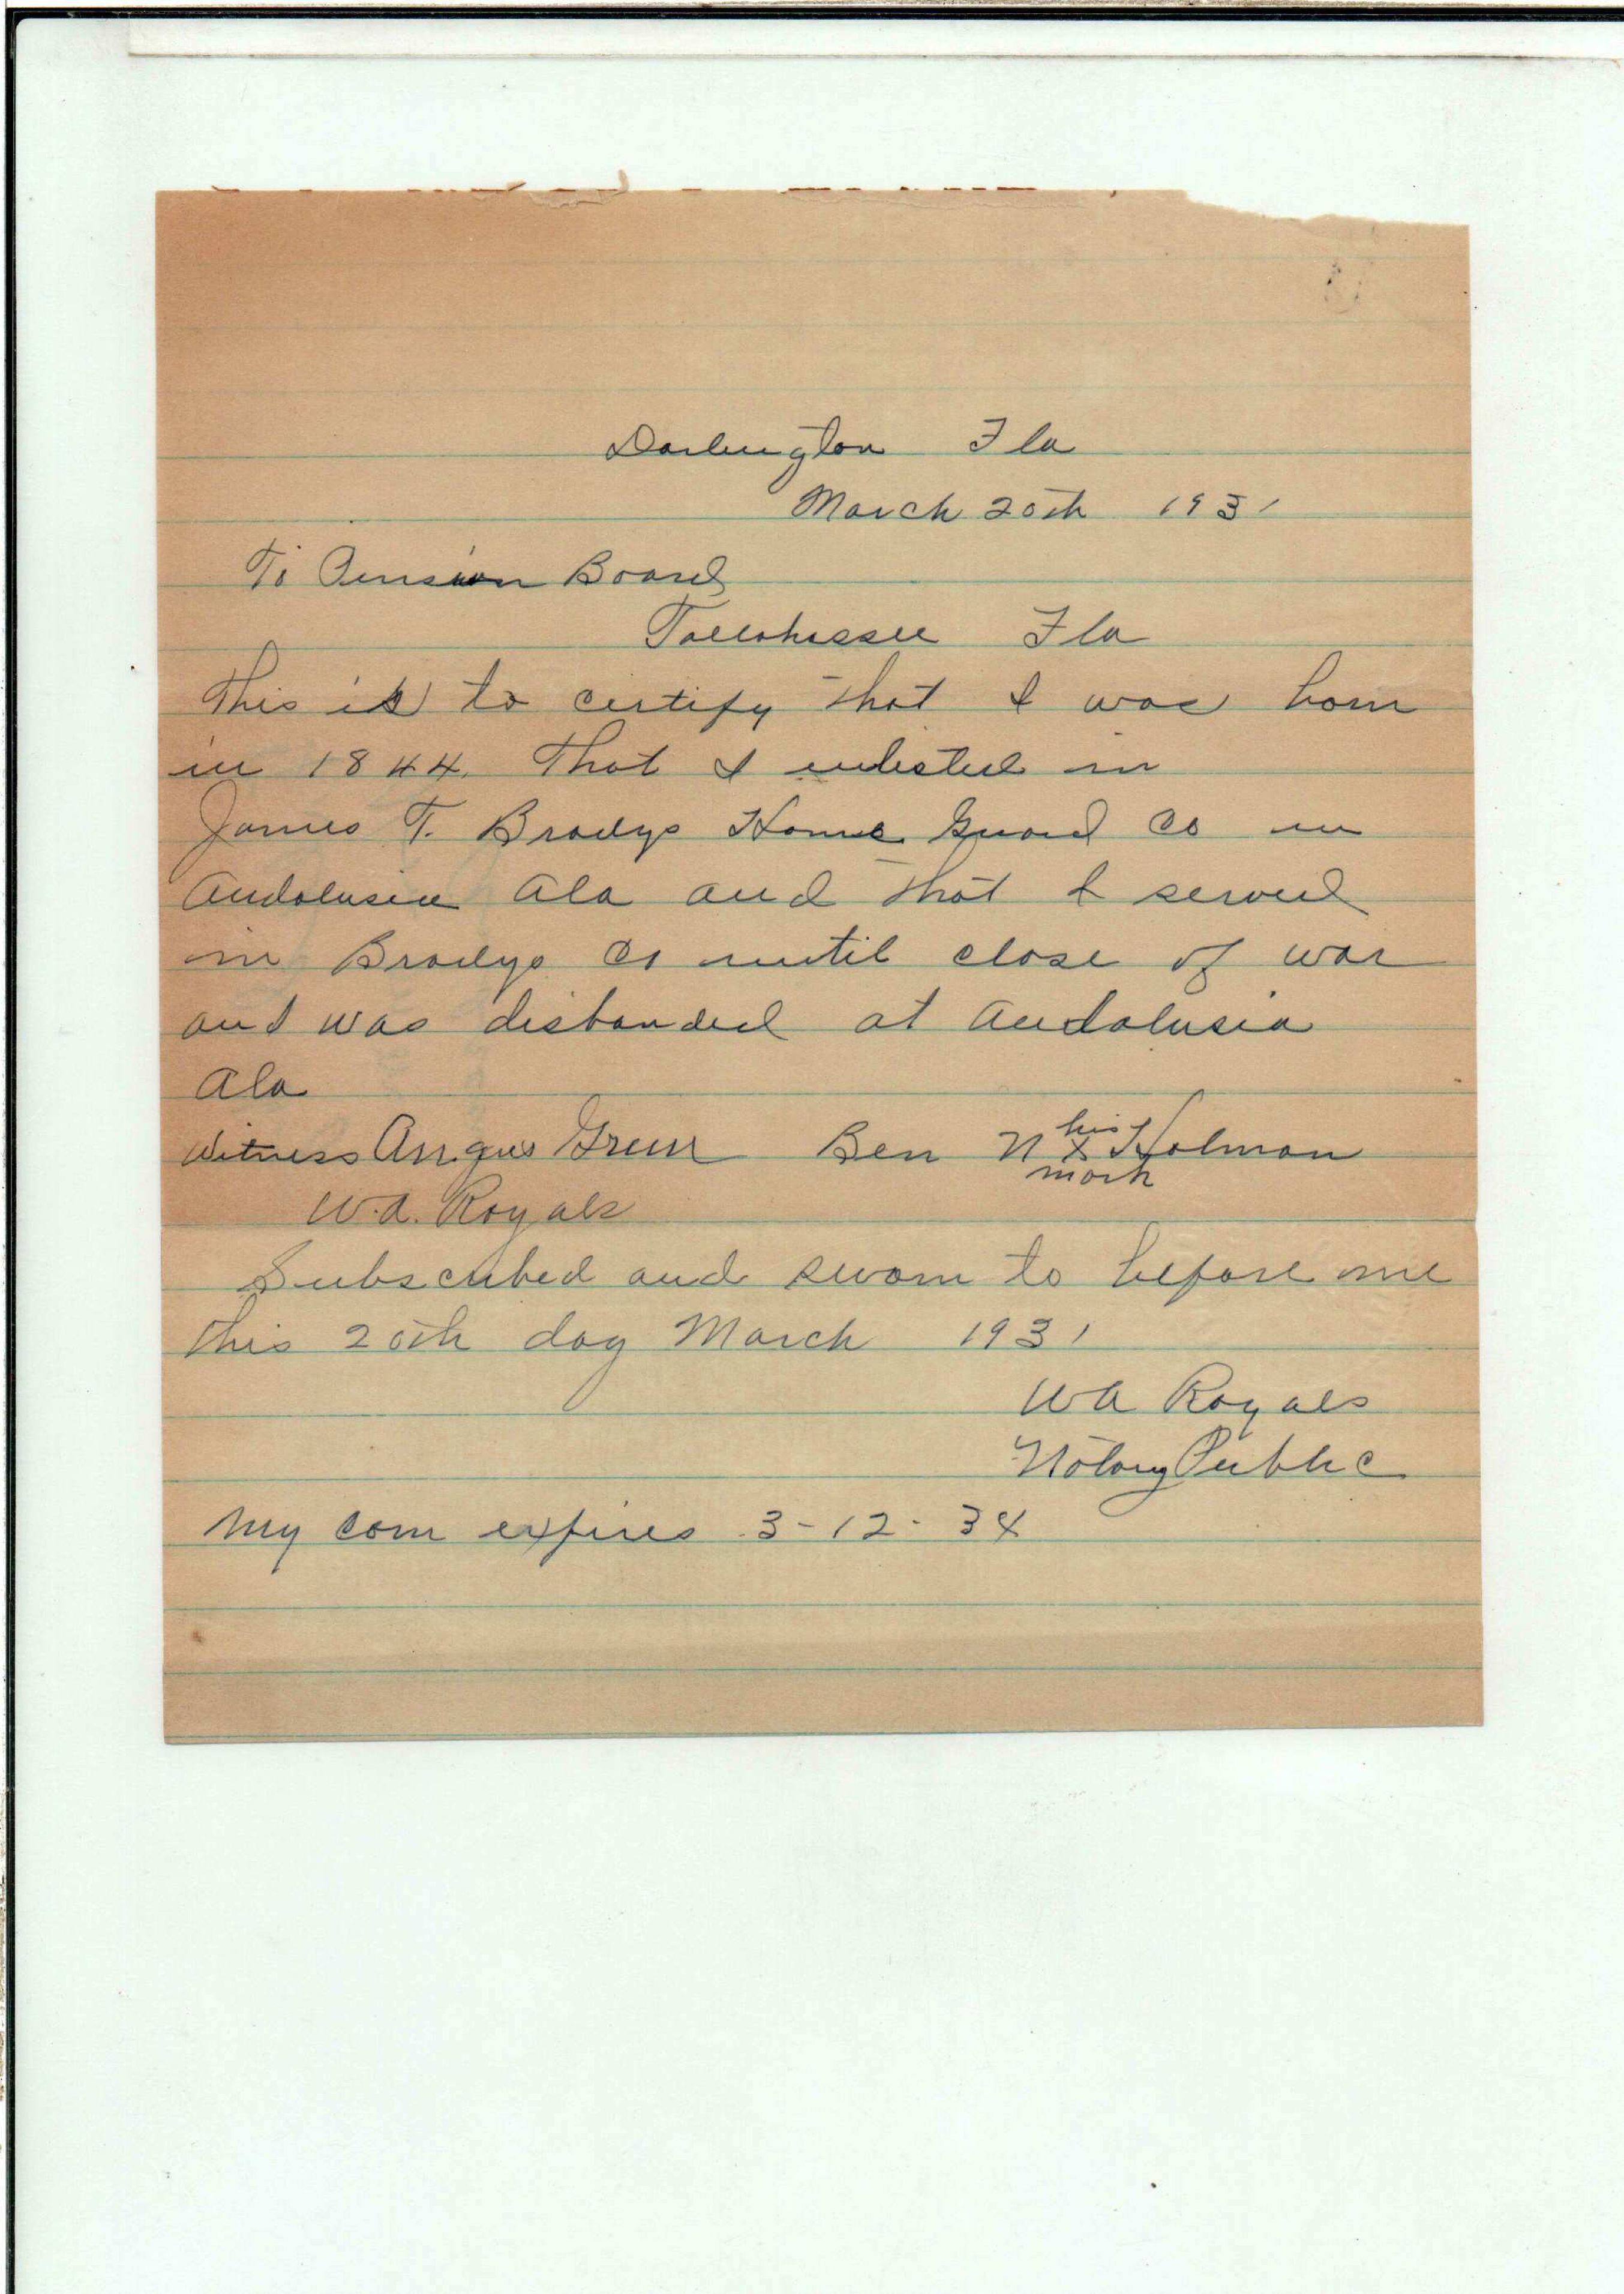 Darlington Fla
March 20th 1931
To Pension Board
Tallahassee Fla
This is to certify that I was born
in 1844. That I enlisted in
James T. Bradys Home Guard Co in
Andalusia Ala and that I served
in Bradys Co until close of war
and was disbanded at Andalusia
Ala
Witness Angus Green Ben N his x mark Holman
W.A. Royals
Subscribed and sworn to before me
this 20th day March 1931
WA Royals
Notary Public
My com expires 3-12-34